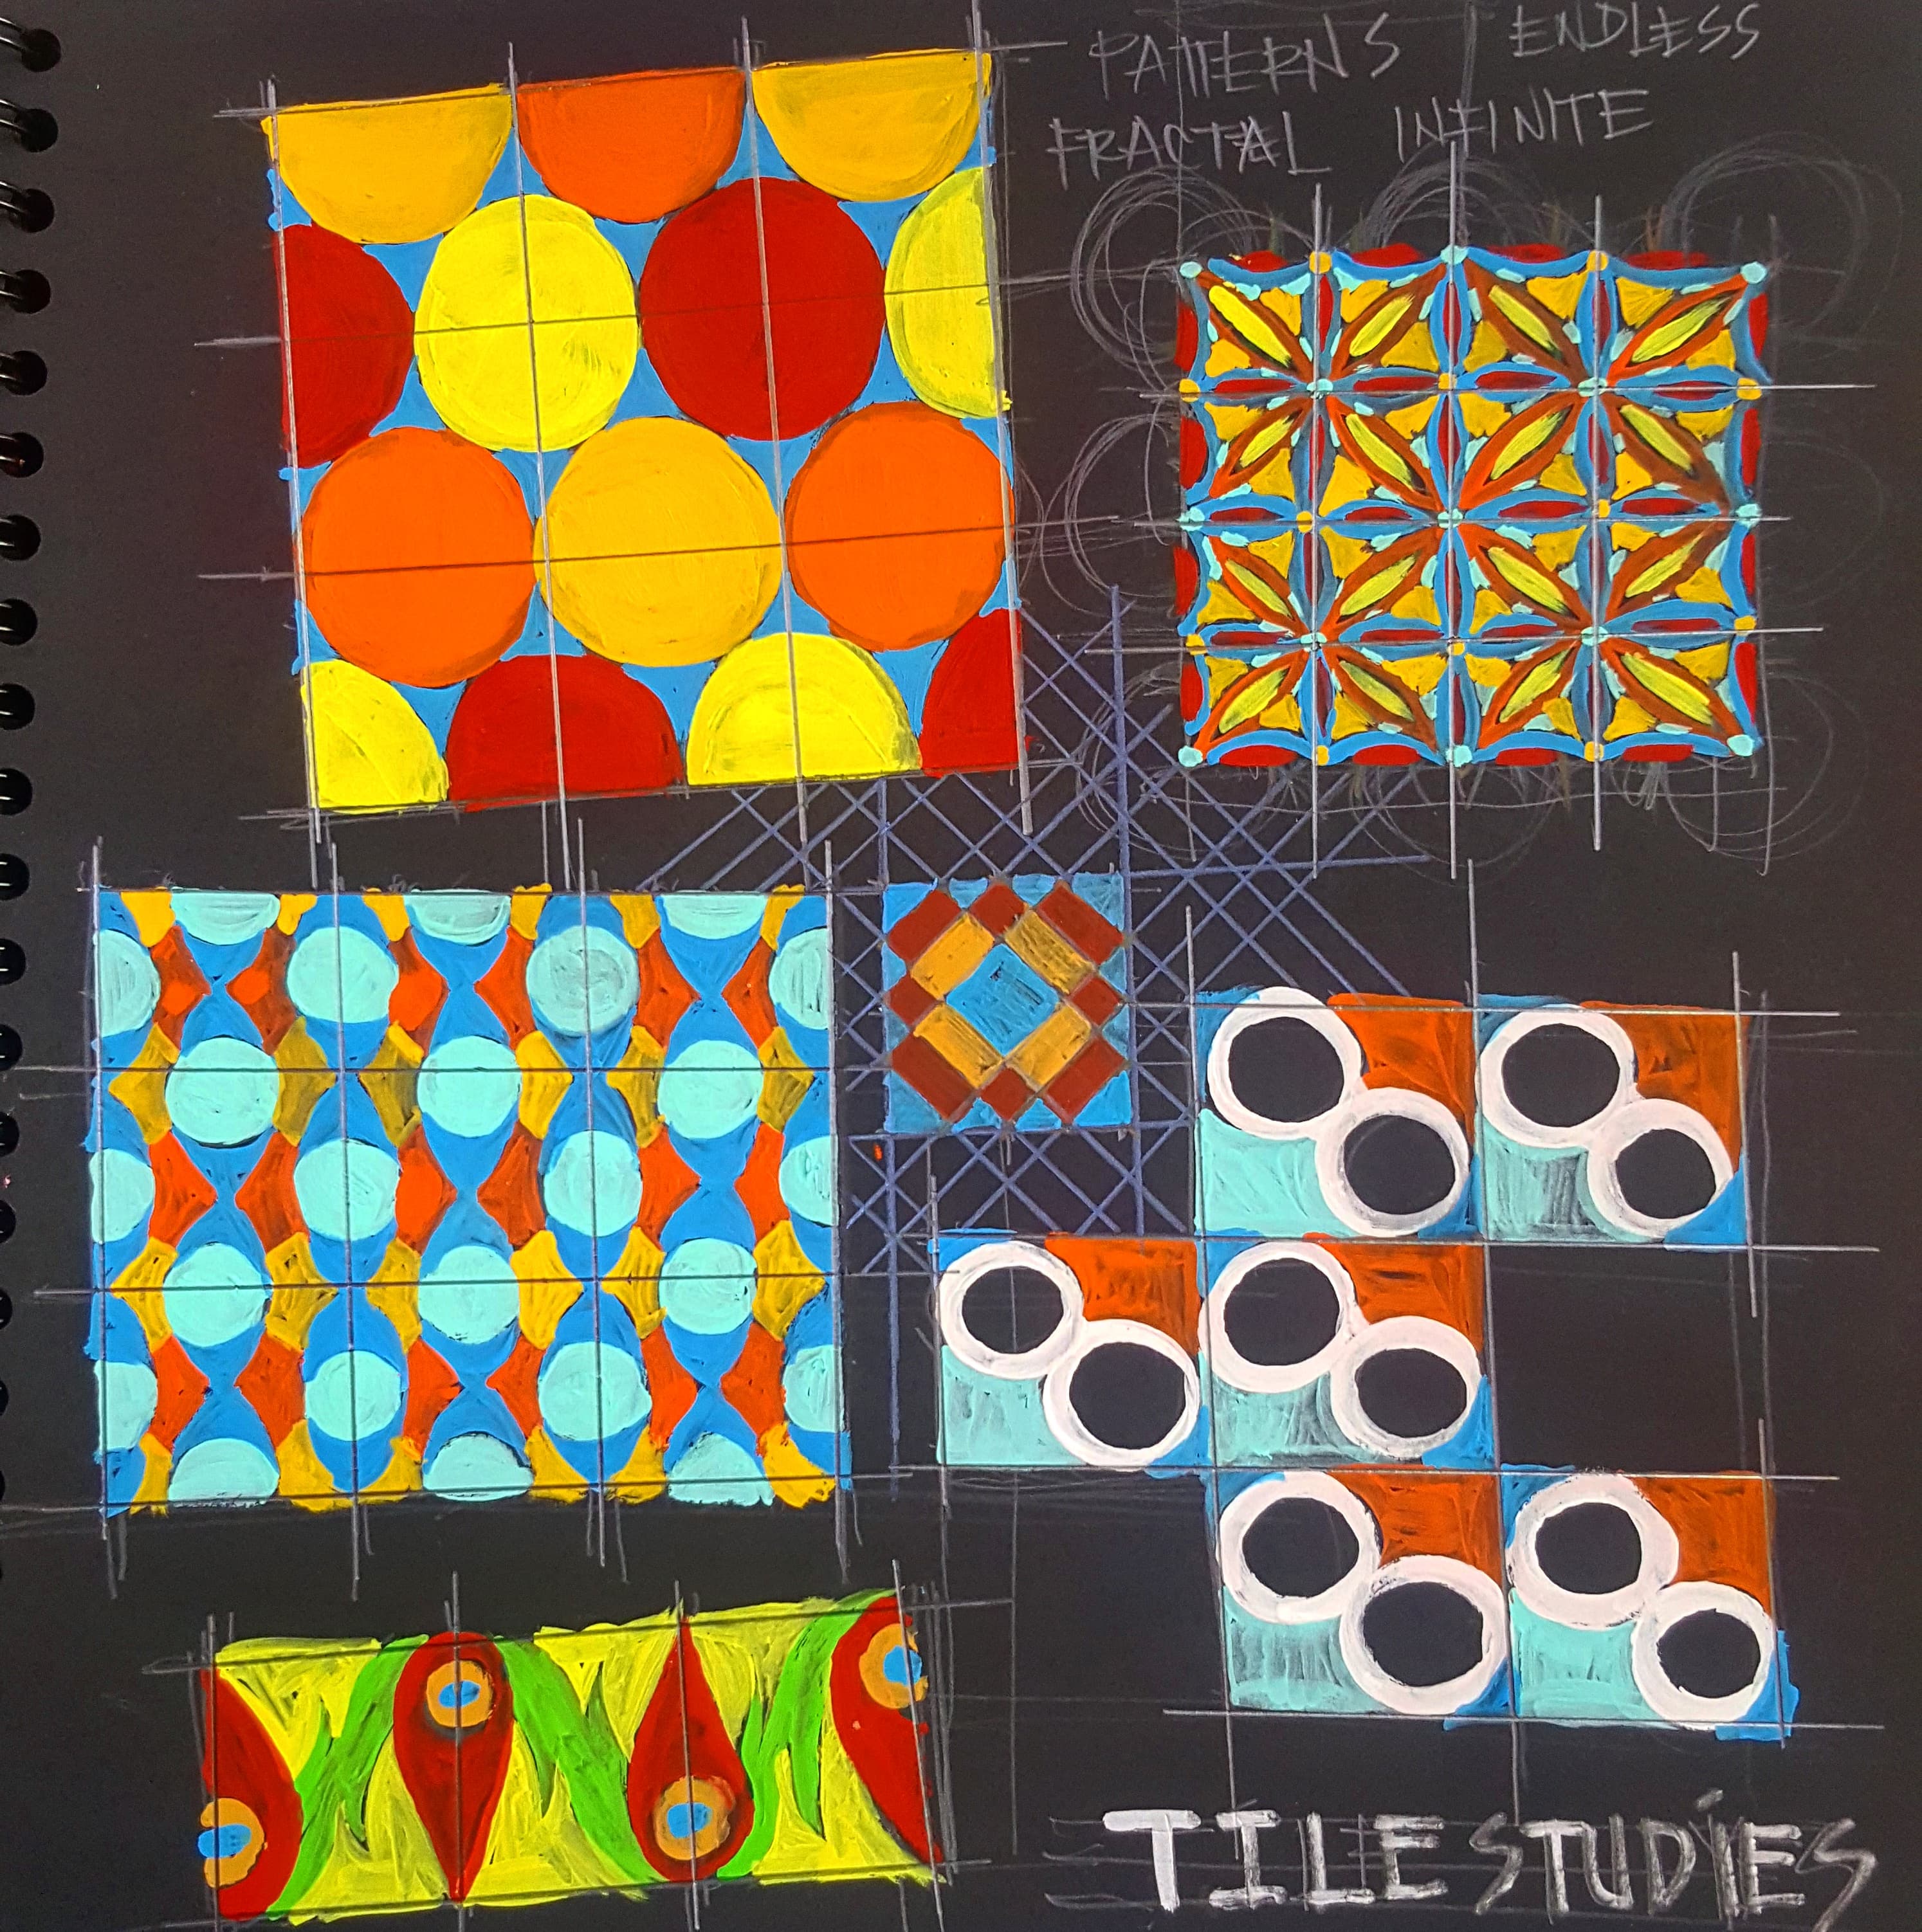 PATTERNS ENDLESS
FRACTAL INFINITE
TILE STUDIES